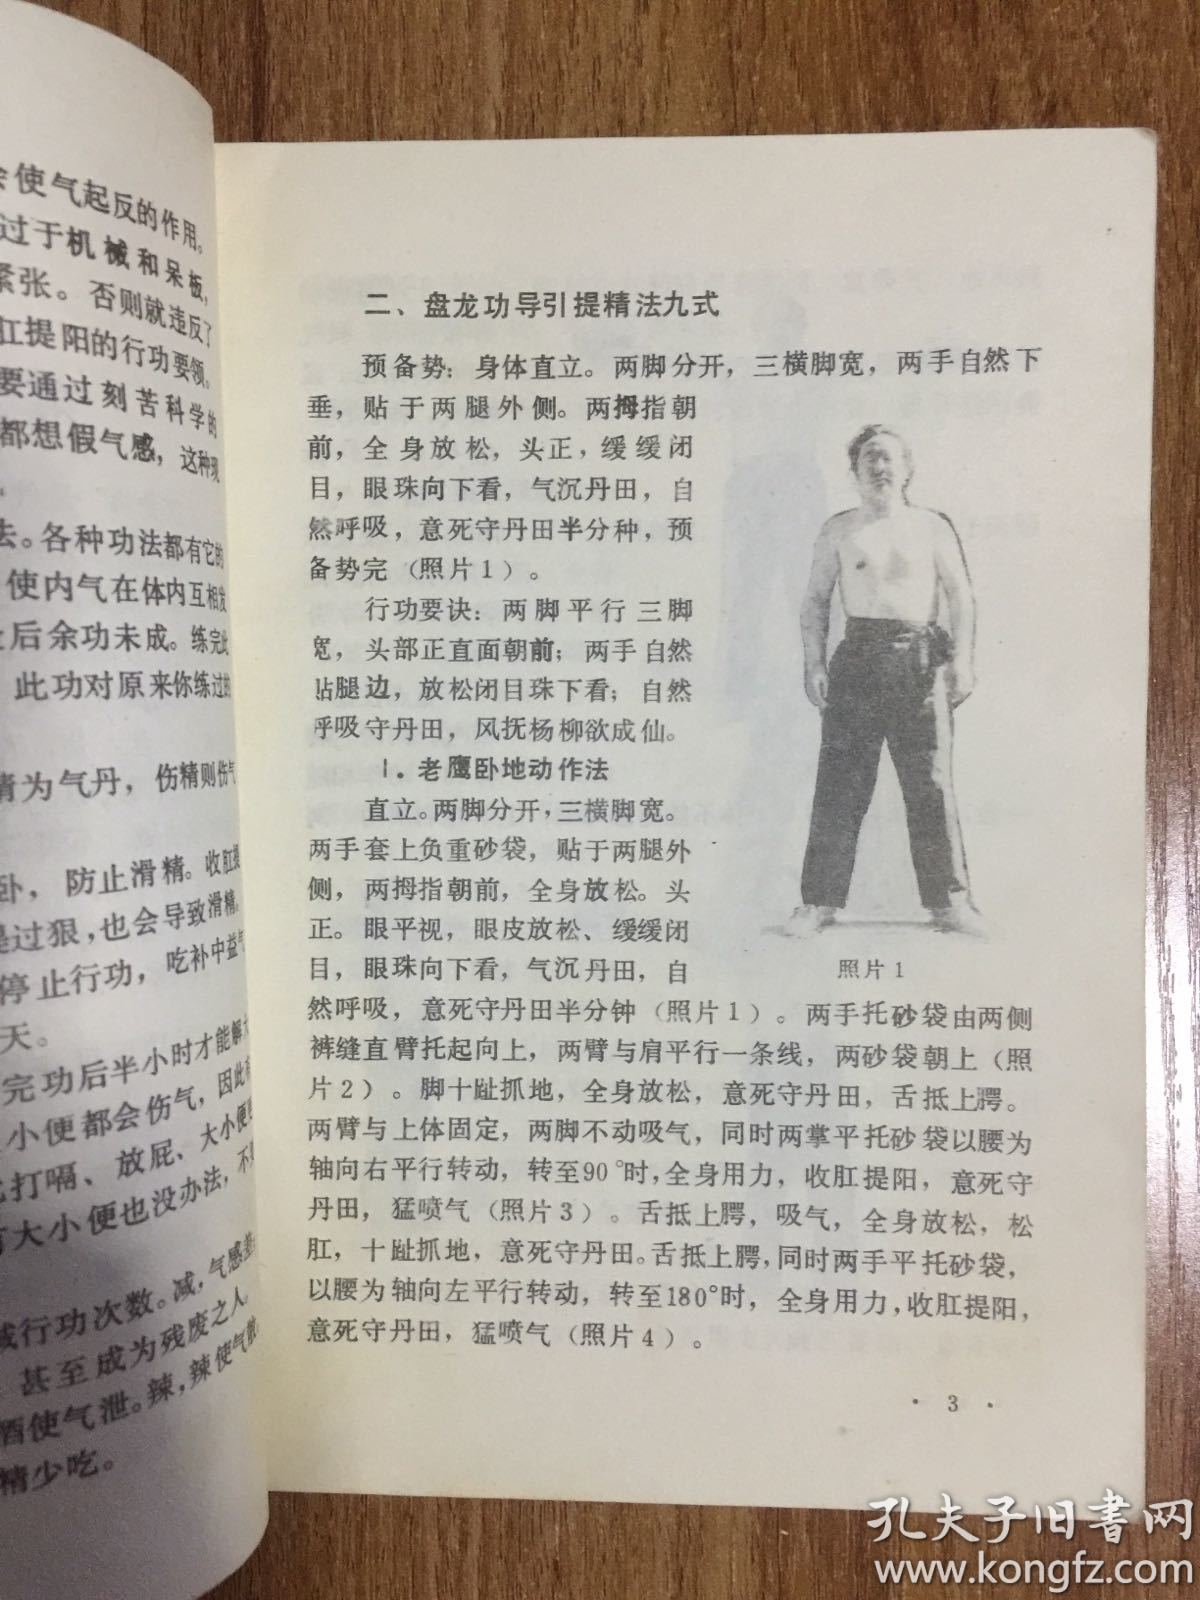 使气起反的作用。
过于机械和呆板，
紧张。否则就违反了
肛提阳的行功要领。
要通过刻苦科学的
都想假气感，这种现
法。各种功法都有它的
使内气在体内互相发
后余功未成。练完此
此功对原来你练过的
精为气丹，伤精则伤气
卧，防止滑精。收肛提
是过狠，也会导致滑精。
停止行功，吃补中益气
天。
完功后半小时才能解大
小便都会伤气，因此
打嗝、放屁、大小便
有大小便也没办法，不
减行功次数。减，气感差
甚至成为残废之人。
酒使气泄。辣，辣使气散
精少吃。
二、盘龙功导引提精法九式
预备势：身体直立。两脚分开，三横脚宽，两手自然下
垂，贴于两腿外侧。两拇指朝
前，全身放松，头正，缓缓闭
目，眼珠向下看，气沉丹田，自
然呼吸，意死守丹田半分种，预
备势完（照片1）。
行功要诀：两脚平行三脚
宽，头部正直面朝前；两手自然
贴腿边，放松闭目珠下看；自然
呼吸守丹田，风抚杨柳欲成仙。
1.老鹰卧地动作法
直立。两脚分开，三横脚宽。
两手套上负重砂袋，贴于两腿外
侧，两拇指朝前，全身放松。头
正。眼平视，眼皮放松、缓缓闭
目，眼珠向下看，气沉丹田，自
照片1
然呼吸，意死守丹田半分钟（照片1）。两手托砂袋由两侧
裤缝直臂托起向上，两臂与肩平行一条线，两砂袋朝上（照
片2）。脚十趾抓地，全身放松，意死守丹田，舌抵上腭。
两臂与上体固定，两脚不动吸气，同时两掌平托砂袋以腰为
轴向右平行转动，转至90°时，全身用力，收肛提阳，意死守
丹田，猛喷气（照片3）。舌抵上腭，吸气，全身放松，松
肛，十趾抓地，意死守丹田。舌抵上腭，同时两手平托砂袋，
以腰为轴向左平行转动，转至180°时，全身用力，收肛提阳，
意死守丹田，猛喷气（照片4）。
·3·
孔夫子旧書网
www.kongfz.com